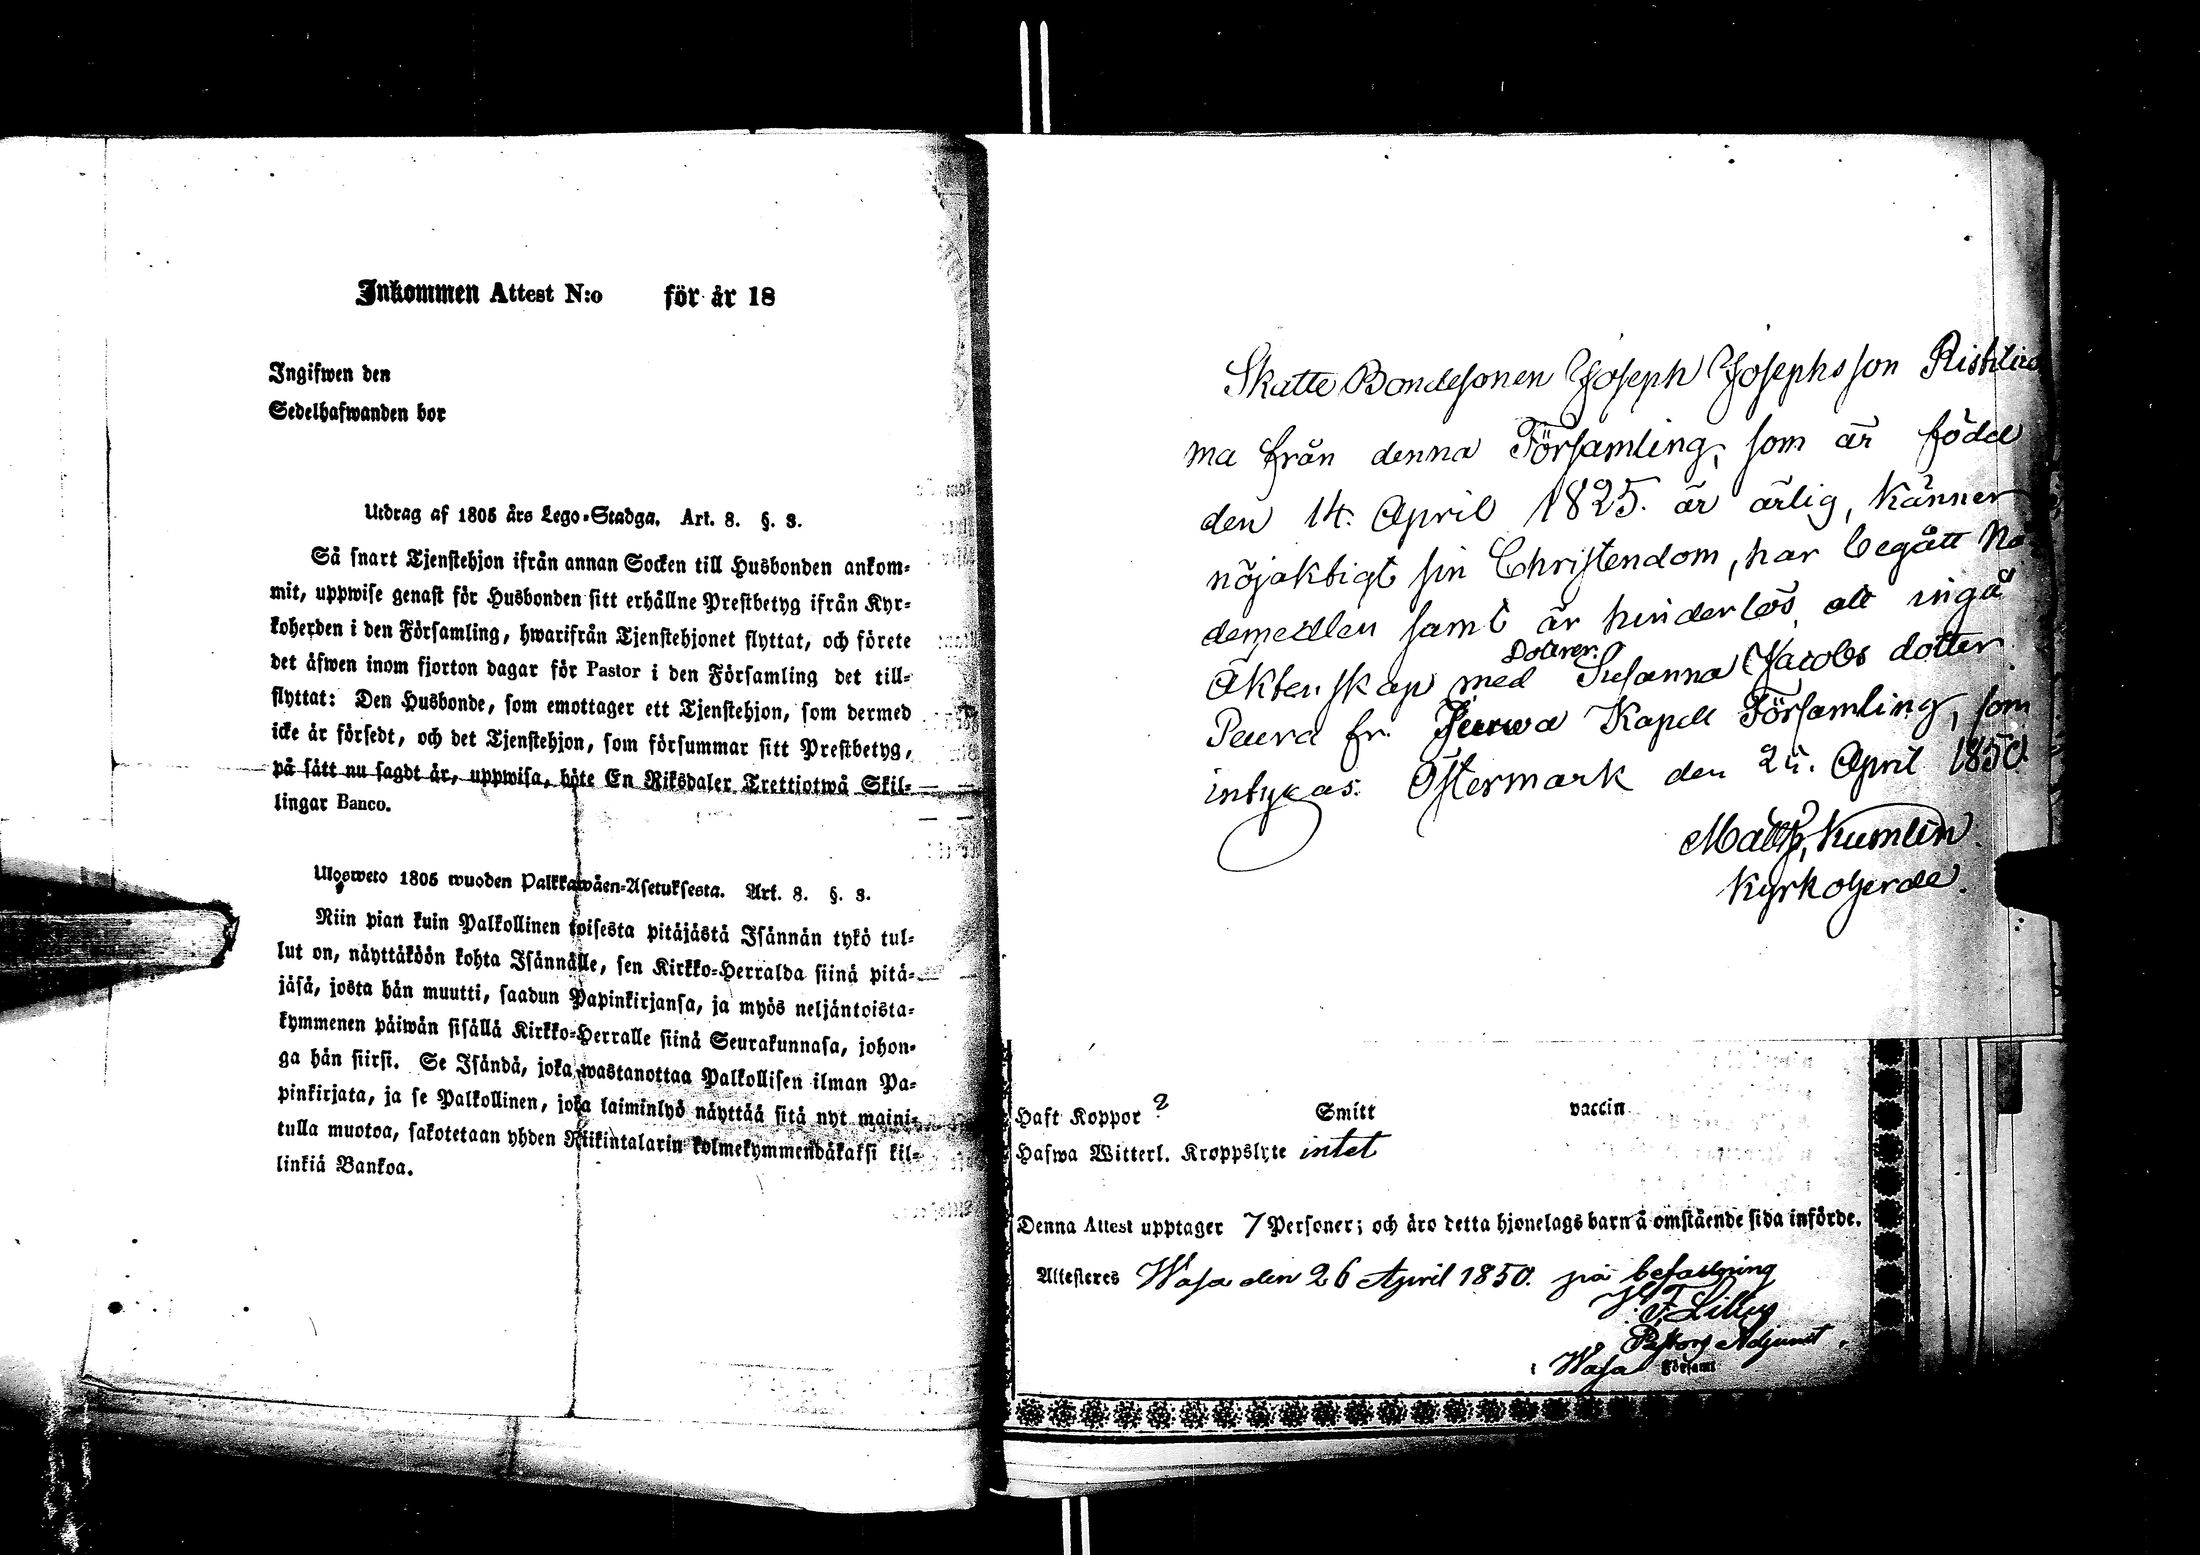 Inkommen Attest N:o för år 18
Ingifwen den
Sedelhafwanden bor
Utdrag af 1805 års Lego-Stadga. Art. 8. §. 3.
Så snart Tjenstehjon ifrån annan Socken till Husbonden ankom-
mit, uppwise genast för Husbonden sitt erhållne Prestbetyg ifrån Kyr-
koherden i den Församling, hwarifrån Tjenstehjonet flyttat, och förete
det äfwen inom fjorton dagar för Pastor i den Församling det till-
flyttat: Den Husbonde, som emottager ett Tjenstehjon, som dermed
icke är försedt, och det Tjenstehjon, som försummar sitt Prestbetyg,
på sätt nu sagdt är, uppwisa, böte En Riksdaler Trettiotwå Skil-
lingar Banco.
Ulosweto 1805 wuoden Palkkawäen-Asetuksesta. Art. 8. §. 3.
Niin pian kuin Palkollinen toisesta pitäjästä Isännän tykö tul-
lut on, näyttäköön kohta Isännälle, sen Kirkko-Herralda siinä pitä-
jäsä, josta hän muutti, saadun Papinkirjansa, ja myös neljäntoista-
kymmenen päiwän sisällä Kirkko-Herralle siinä Seurakunnasa, johon-
ga hän siirsi. Se Isändä, joka wastanottaa Palkollisen ilman Pa-
pinkirjata, ja se Palkollinen, joka laiminlyö näyttää sitä nyt maini-
tulla muotoa, sakotetaan yhden Riikintalarin kolmekymmendäkaksi kil-
linkiä Bankoa.
Skatte Bondesonen Joseph Josephsson
ma från denna Församling, som är född
den 14. April 1825. är ärlig, känner
nöjaktigt sin Christendom, har begått Nå-
demedlen samt är hinderlös att ingå
Dottren
Äktenskap med Susanna Jacobs dotter
Peura fr. Jurwa Kapell Församling, som
intygas. Östermark den April 1850.
Matts Kumlin.
Kyrkoherde.
Haft Koppor ? Smitt vaccin
Hafwa Witterl. Kroppslyte intet
Denna Attest upptager 7 Personer; och äro detta hjonelags barn å omstående sida införde.
Attesteres Wasa den 26 April 1850. på befallning
Lilius
Pastors Adjunct
i Wasa Församl